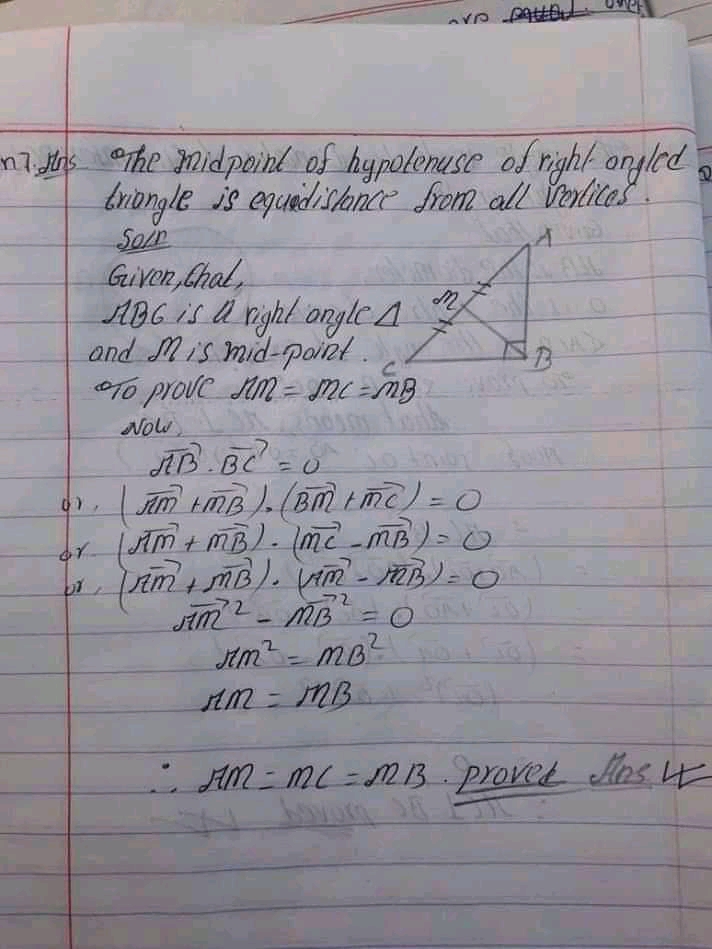 are equal. over
n7. Ans The midpoint of hypotenuse of right angled
triangle is equidistance from all vertices.
Soln
Given, that,
ABC is a right angle Δ
and M is mid-point.
To prove AM = MC = MB
Now,
A
M
C
B
$\overrightarrow{AB} \cdot \overrightarrow{BC} = 0$
or, $(\overrightarrow{AM} + \overrightarrow{MB}) \cdot (\overrightarrow{BM} + \overrightarrow{MC}) = 0$
or $(\overrightarrow{AM} + \overrightarrow{MB}) \cdot (\overrightarrow{MC} - \overrightarrow{MB}) = 0$
or, $(\overrightarrow{AM} + \overrightarrow{MB}) \cdot (\overrightarrow{AM} - \overrightarrow{MB}) = 0$
$\overrightarrow{AM}^2 - \overrightarrow{MB}^2 = 0$
$AM^2 = MB^2$
AM = MB
∴ AM = MC = MB. proved Ans